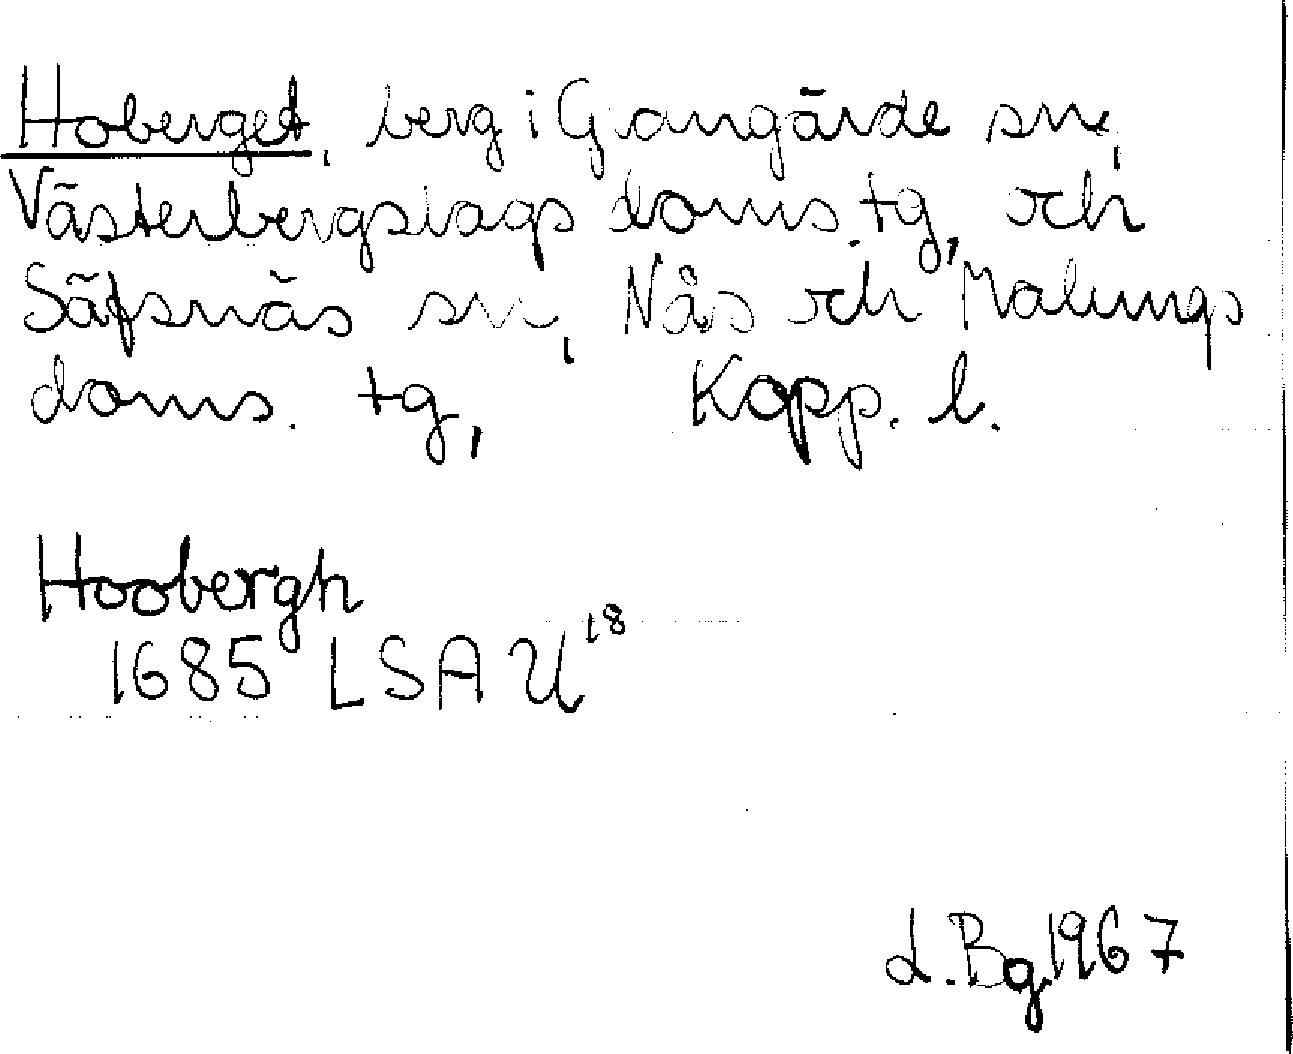 Hoberget, berg i Grangärde sn,
Västerbergslags doms. tg, och
Säfsnäs sn, Nås och Malungs
doms. tg, Kopp. l.
Hoobergh
1685 LSA U18
L. Bg 1967